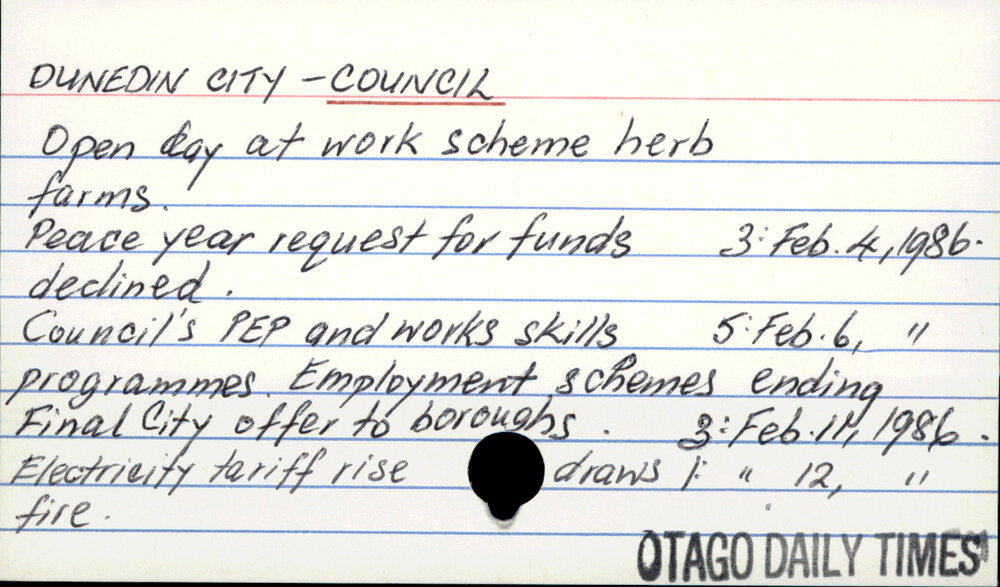 DUNEDIN CITY - COUNCIL
Open day at work scheme herb
farms.
Peace year request for funds 3: Feb. 4, 1986.
declined.
Council's PEP and works skills 5: Feb. 6, "
programmes. Employment schemes ending
Final City offer to boroughs. 3: Feb. 11, 1986.
Electricity tariff rise draws 1: " 12, "
fire.
OTAGO DAILY TIMES